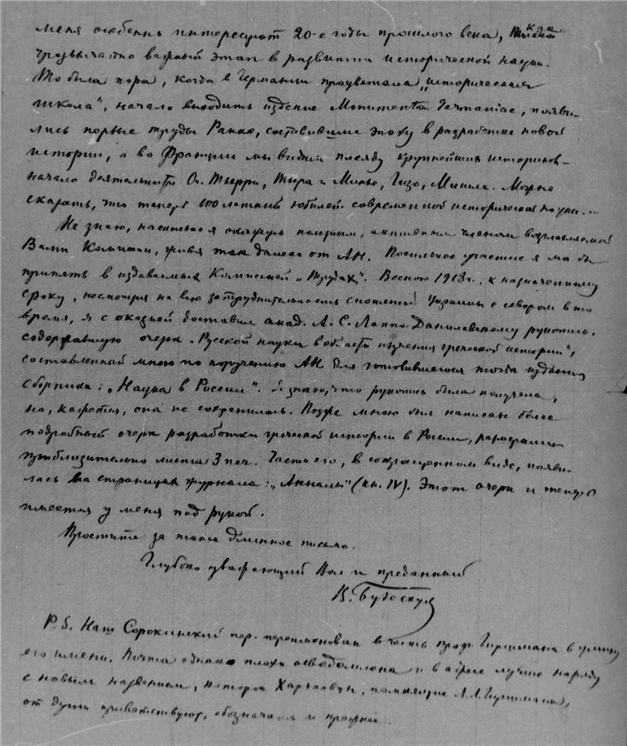 меня особенно интересуют 20-е годы прошлого века, как
чрезвычайно важный этап в развитии исторической науки.
То была пора, когда в Германии процветала „историческая
школа“, начало выходить издание Monumenta Germaniae, появи-
лись первые труды Ранке, составившие эпоху в разработке новой
истории, а во Франции мы видим плеяду крупнейших историков-
начало деятельности Ог. Тьерри, Тьера и Минье, Гизо, Мишле. Можно
сказать, что теперь 100 летний юбилей современной исторической науки...
Не знаю, насколько я окажусь полезным, активным членом возглавляемой
Вами Комиссии, живя так далеко от АН. Посильное участие я мог бы
принять в издаваемых Комиссией „Трудах“. Весною 1918 г., к назначенному
сроку, несмотря на всю затруднительность сношений Украины с севером в то
время, я с оказией доставил акад. А. С. Лаппо-Данилевскому рукопись,
содержавшую очерк „Русской науки в области изучения греческой истории“,
составленный мною по поручению АН для готовившегося тогда издания
сборника: „Наука в России“. Я знаю, что рукопись была получена,
но, кажется, она не сохранилась. Позже мною был написан более
подробный очерк разработки греческой истории в России, размерами
приблизительно листа 3 печ. Часть его, в сокращенном виде, появи-
лась на страницах журнала: „Анналы“ (кн. IV). Этот очерк и теперь
имеется у меня под рукой.
Простите за такое длинное письмо.
Глубоко уважающий Вас и преданный
В. Бузескул
P.S. Наш Сорокинский пер. переименован в честь проф. Гиршмана в улицу
его имени. Почта однако плохо осведомлена и в адресе лучше наряду
с новым названием, которое Харьковчане, помнящие Л.Л. Гиршмана,
от души приветствуют, обозначать и прежнее.